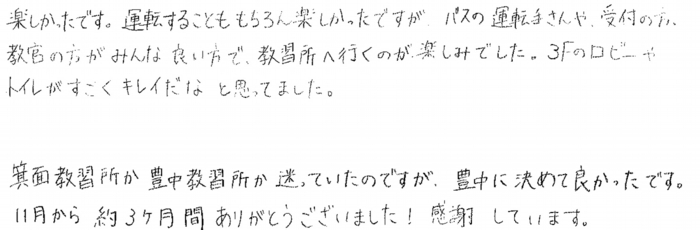 楽しかったです。運転することももちろん楽しかったですが、バスの運転手さんや、受付の方、
教官の方がみんな良い方で、教習所へ行くのが楽しみでした。3Fのロビーや
トイレがすごくキレイだなと思ってました。
箕面教習所か豊中教習所か迷っていたのですが、豊中に決めて良かったです。
11月から約3ヶ月間ありがとうございました!感謝しています。